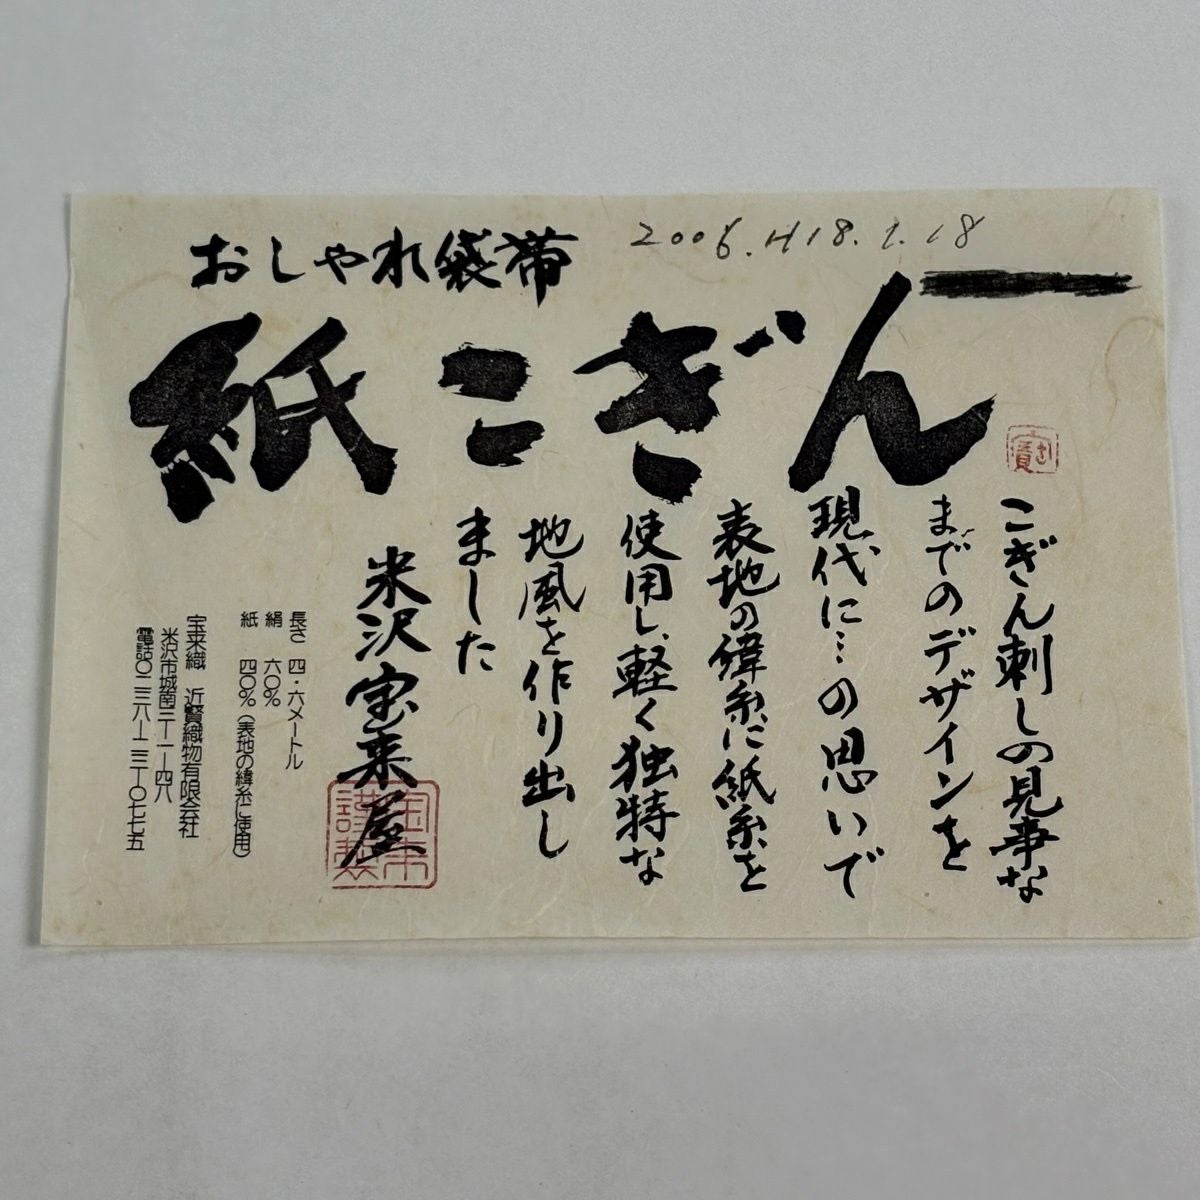 おしゃれ袋帯
2006.H18.1.18
紙こぎん
こぎん刺しの見事な
までのデザインを
現代に…の思いで
表地の緯糸に紙糸を
使用し、軽く独特な
地風を作り出し
ました
米沢宝来屋
宝来謹製
長さ 四・六メートル
絹 六〇%
紙 四〇%(表地の緯糸に使用)
宝来織 近賢織物有限会社
米沢市城南三―一―四八
電話〇二三八―二三―〇七七五